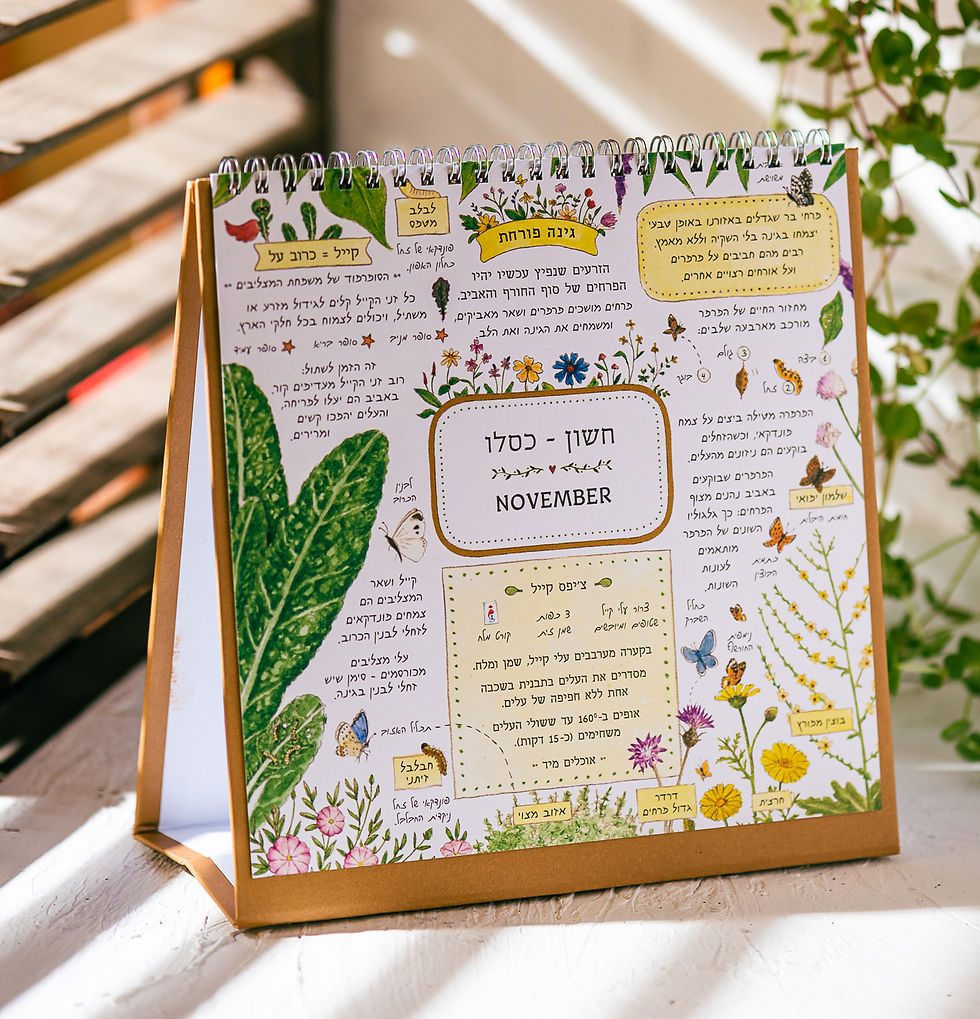 משושת
פרחי בר שגדלים באזורנו באופן טבעי
יצמחו בגינה בלי השקיה וללא מאמץ.
רבים מהם חביבים על פרפרים
ועל אורחים רצויים אחרים.
גינה פורחת
הזרעים שנפיץ עכשיו יהיו
הפרחים של סוף החורף והאביב.
פרחים מושכים פרפרים ושאר מאביקים,
ומשמחים את הגינה ואת הלב.
לבלב
מטפס
פונדקאי של זחל
כחלון האפון.
קייל = כרוב על
•• הסופרפוד של משפחת המצליבים ••
כל זני הקייל קלים לגידול מזרע או
משתיל, ויכולים לצמוח בכל חלקי הארץ.
סופר מניב
סופר בריא
סופר עמיד
זה הזמן לשתול:
רוב זני הקייל מעדיפים קור,
באביב הם יעלו לפריחה,
והעלים יהפכו קשים
ומרירים.
מחזור החיים של הפרפר
מורכב מארבעה שלבים:
1 ביצה
2 זחל
3 גולם
4 בוגר
הפרפרה מטילה ביצים על צמח
פונדקאי, וכשהזחלים
בוקעים הם ניזונים מהעלים.
הפרפרים שבוקעים
באביב נהנים מצוף
הפרחים: כך גלגוליו
השונים של הפרפר
מותאמים
לעונות
השונות.
שלמון יפואי
כתמית
הבוצין
חשון - כסלו
NOVEMBER
לבנין
הכרוב
קייל ושאר
המצליבים הם
צמחים פונדקאים
לזחלי לבנין הכרוב.
עלי מצליבים
מכורסמים - סימן שיש
זחלי לבנין בגינה.
צ׳יפס קייל
צרור עלי קייל
שטופים ומיובשים
3 כפות
שמן זית
קורט מלח
בקערה מערבבים עלי קייל, שמן ומלח.
מסדרים את העלים בתבנית בשכבה
אחת ללא חפיפה של עלים.
אופים ב-160° עד ששולי העלים
משחימים (כ-15 דקות).
•• אוכלים מיד ••
כחליל
השברק
נימפית
החורשף
בוצין מפורץ
תכליל האזוב
חבלבל
זיתני
פונדקאי של זחל
נקדת החבלבל.
אזוב מצוי
דרדר
גדול פרחים
חרצית